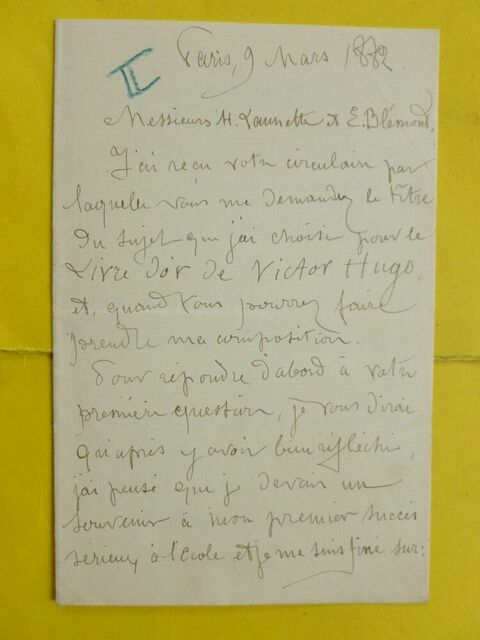 II
Paris, 9 Mars 1882.
Messieurs H. Launette & E. Blémond.
J'ai reçu votre circulaire par
laquelle vous me demandez le titre
du sujet que j'ai choisi pour le
Livre d'or de Victor Hugo,
et, quand vous pourrez faire
prendre ma composition.
Pour répondre d'abord à votre
première question, je vous dirai
qu'après y avoir bien réfléchi,
j'ai pensé que je devais un
souvenir à mon premier succès
sérieux à l'école et je me suis fixé sur: